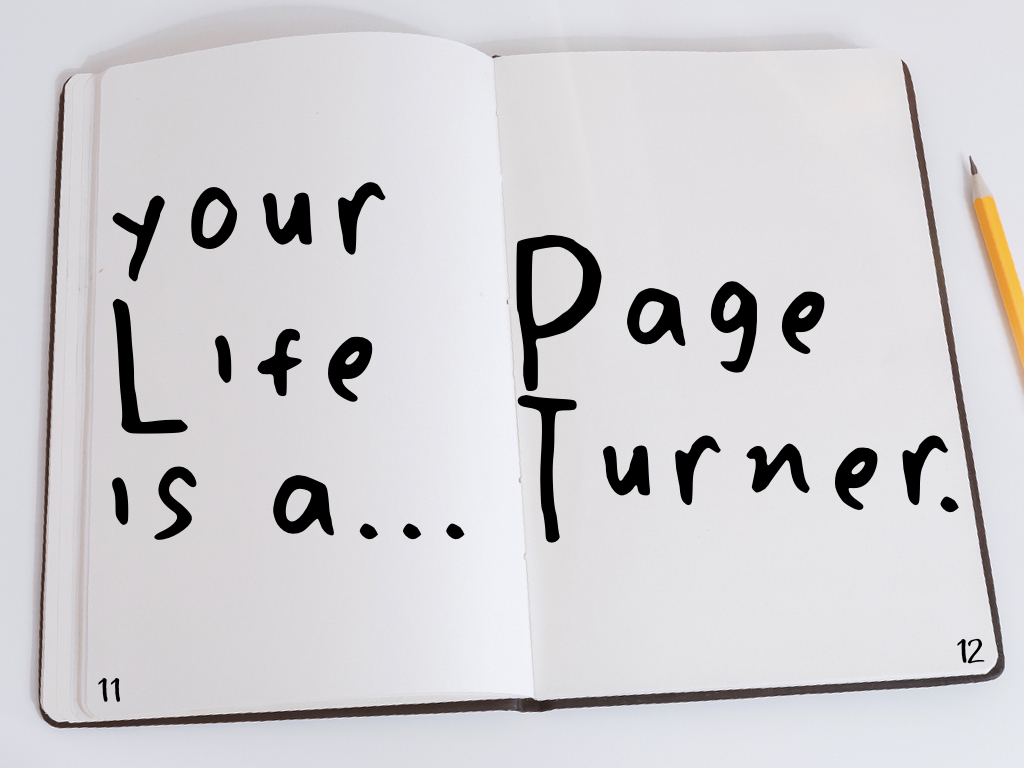 your
Life
is a...
11
Page
Turner.
12